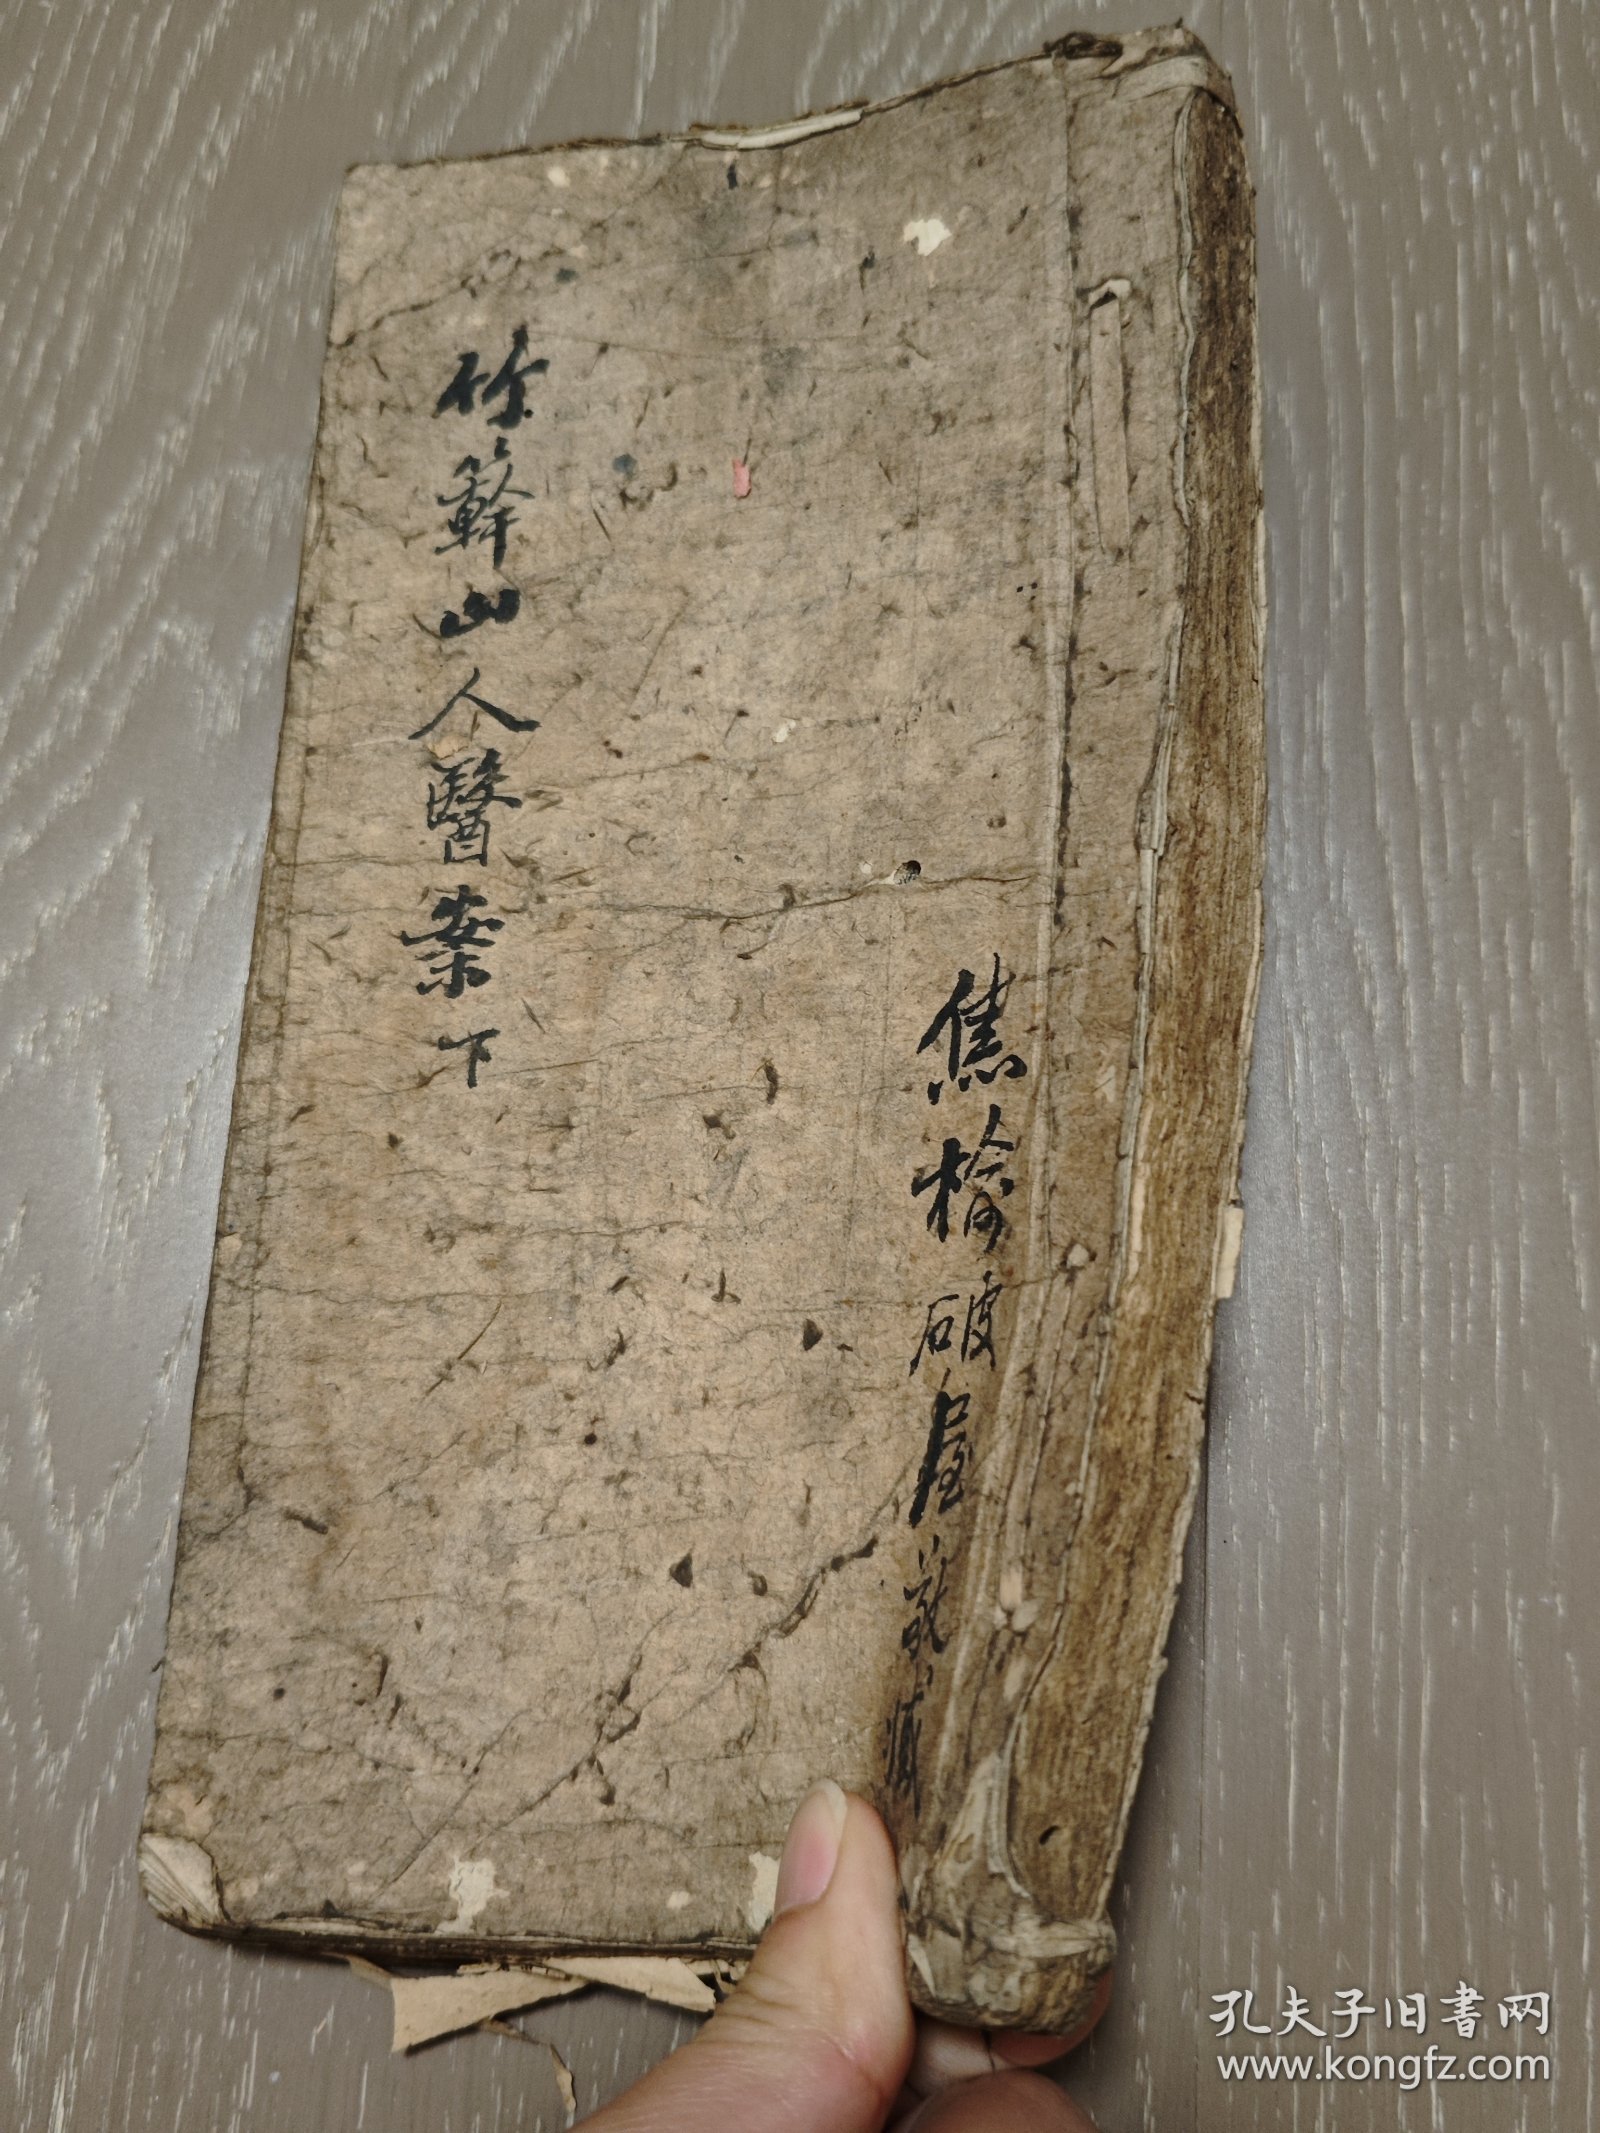 焦榆破屋
竹簳山人醫案下
孔夫子旧書网
www.kongfz.com